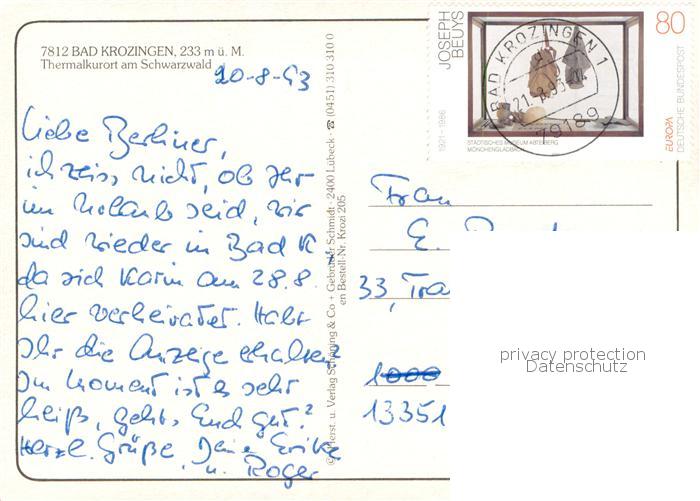 7812 BAD KROZINGEN, 233 m ü. M.
Thermalkurort am Schwarzwald
20-8-93
Liebe Berliner,
ich weiss nicht, ob Ihr
im Urlaub seid, wir
sind wieder in Bad K.
da sich Karin am 28.8.
hier verheiratet. Habt
Ihr die Anzeige erhalten?
Im Moment ist es sehr
heiß, geht's Euch gut?
Herzl. Grüße, Deine Erika
u. Roger
© Herst. u. Verlag Schöning & Co + Gebrüder Schmidt · 2400 Lübeck · ☎ (0451) 310 310 0
en Bestell-Nr. Krozi 205
JOSEPH
BEUYS
1921-1986
80
STÄDTISCHES MUSEUM ABTEIBERG
MÖNCHENGLADBACH
EUROPA
DEUTSCHE BUNDESPOST
BAD KROZINGEN 1
21.8.93
79189
Frau
E.
33, Tra
1000
13351
privacy protection
Datenschutz